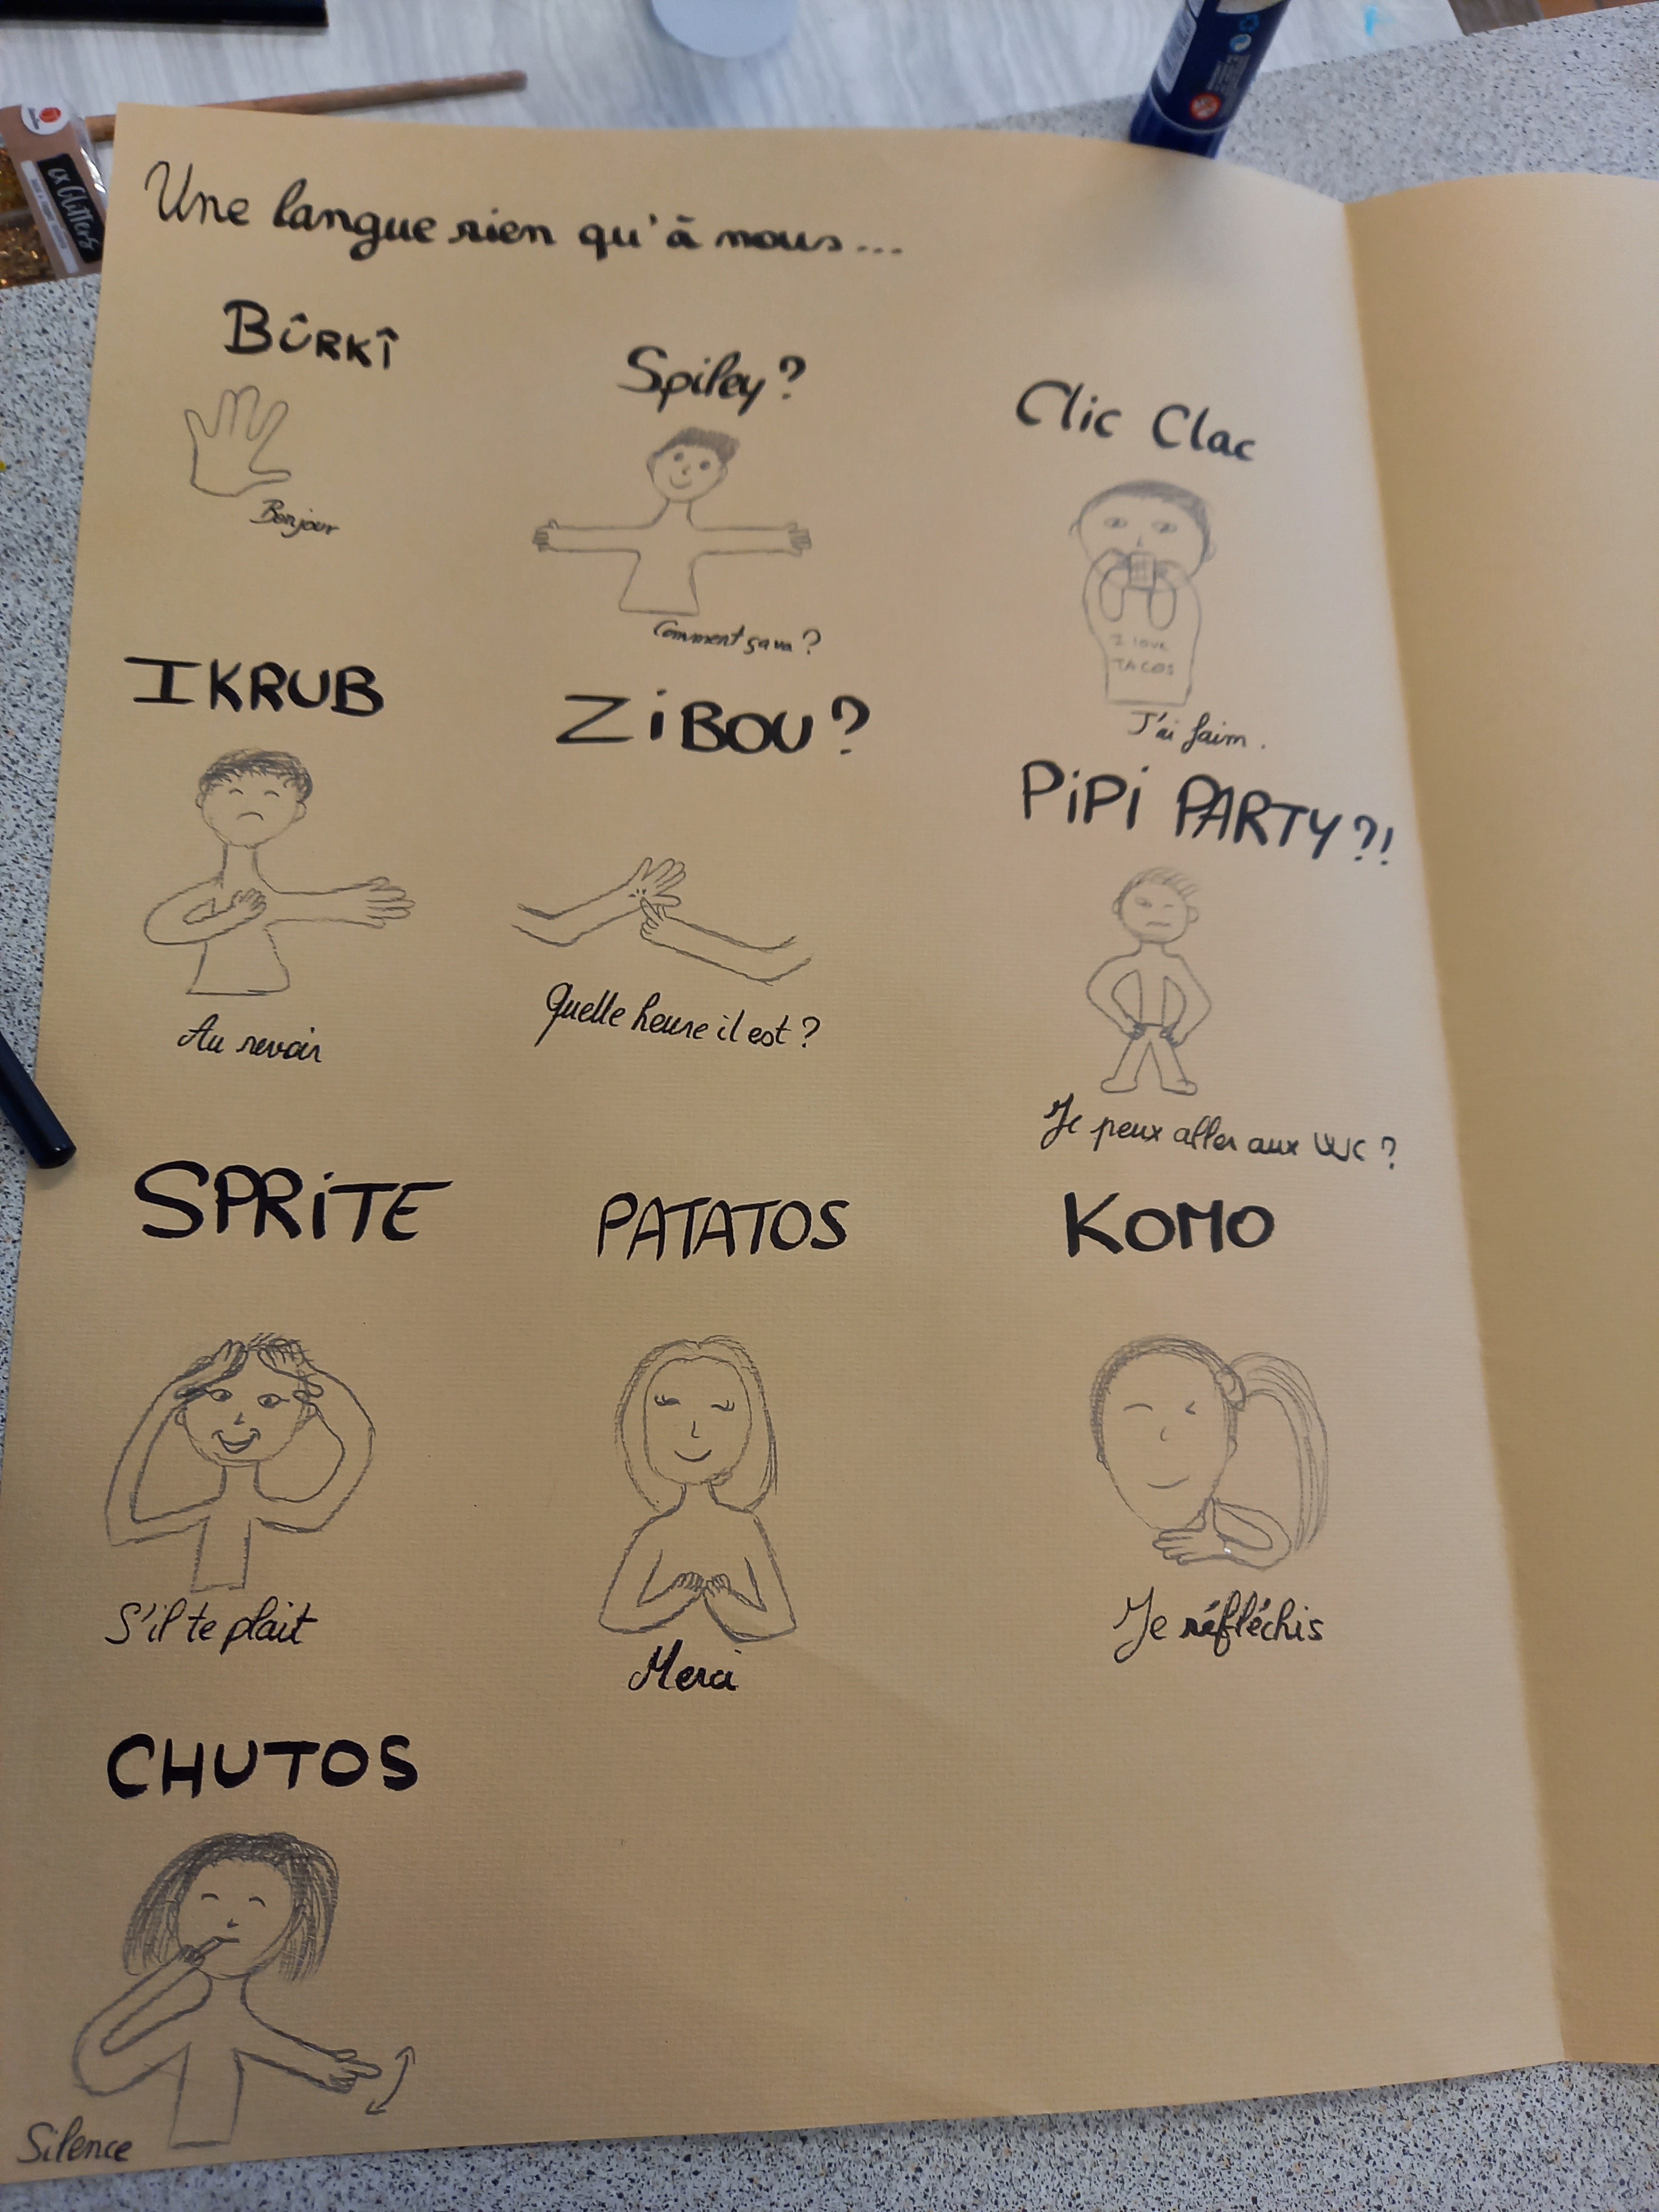 Une langue rien qu'à nous...
BÛRKÎ
Bonjour
Spiley?
Comment ça va?
Clic Clac
I love
TACOS
J'ai faim.
IKRUB
Au revoir
ZiBOU?
Quelle heure il est?
PiPi PARTY?!
Je peux aller aux WC?
SPRiTE
S'il te plait
PATATOS
Merci
KOMO
Je réfléchis
CHUTOS
Silence
Glitters